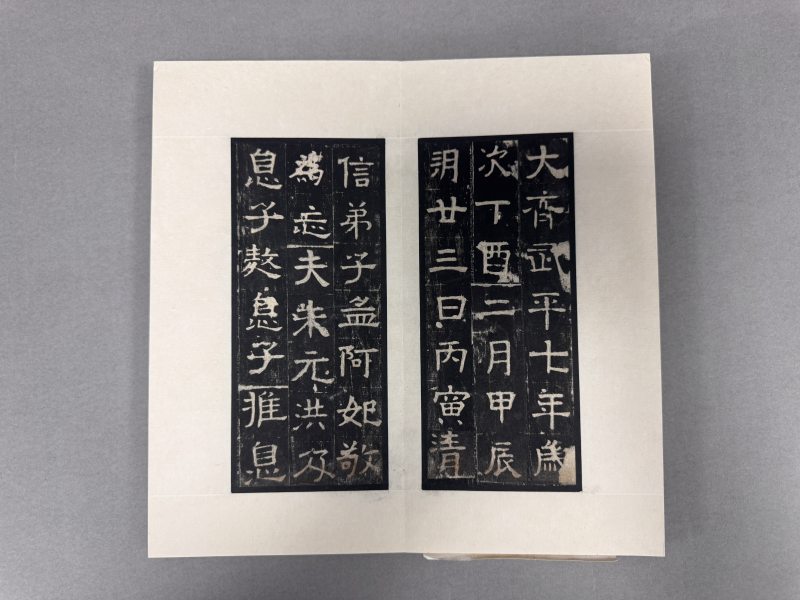 大齊武平七年歲
次丁酉二月甲辰
朔廿三日丙寅清
信弟子孟阿妃敬
為亡夫朱元洪及
息子敖息子推息